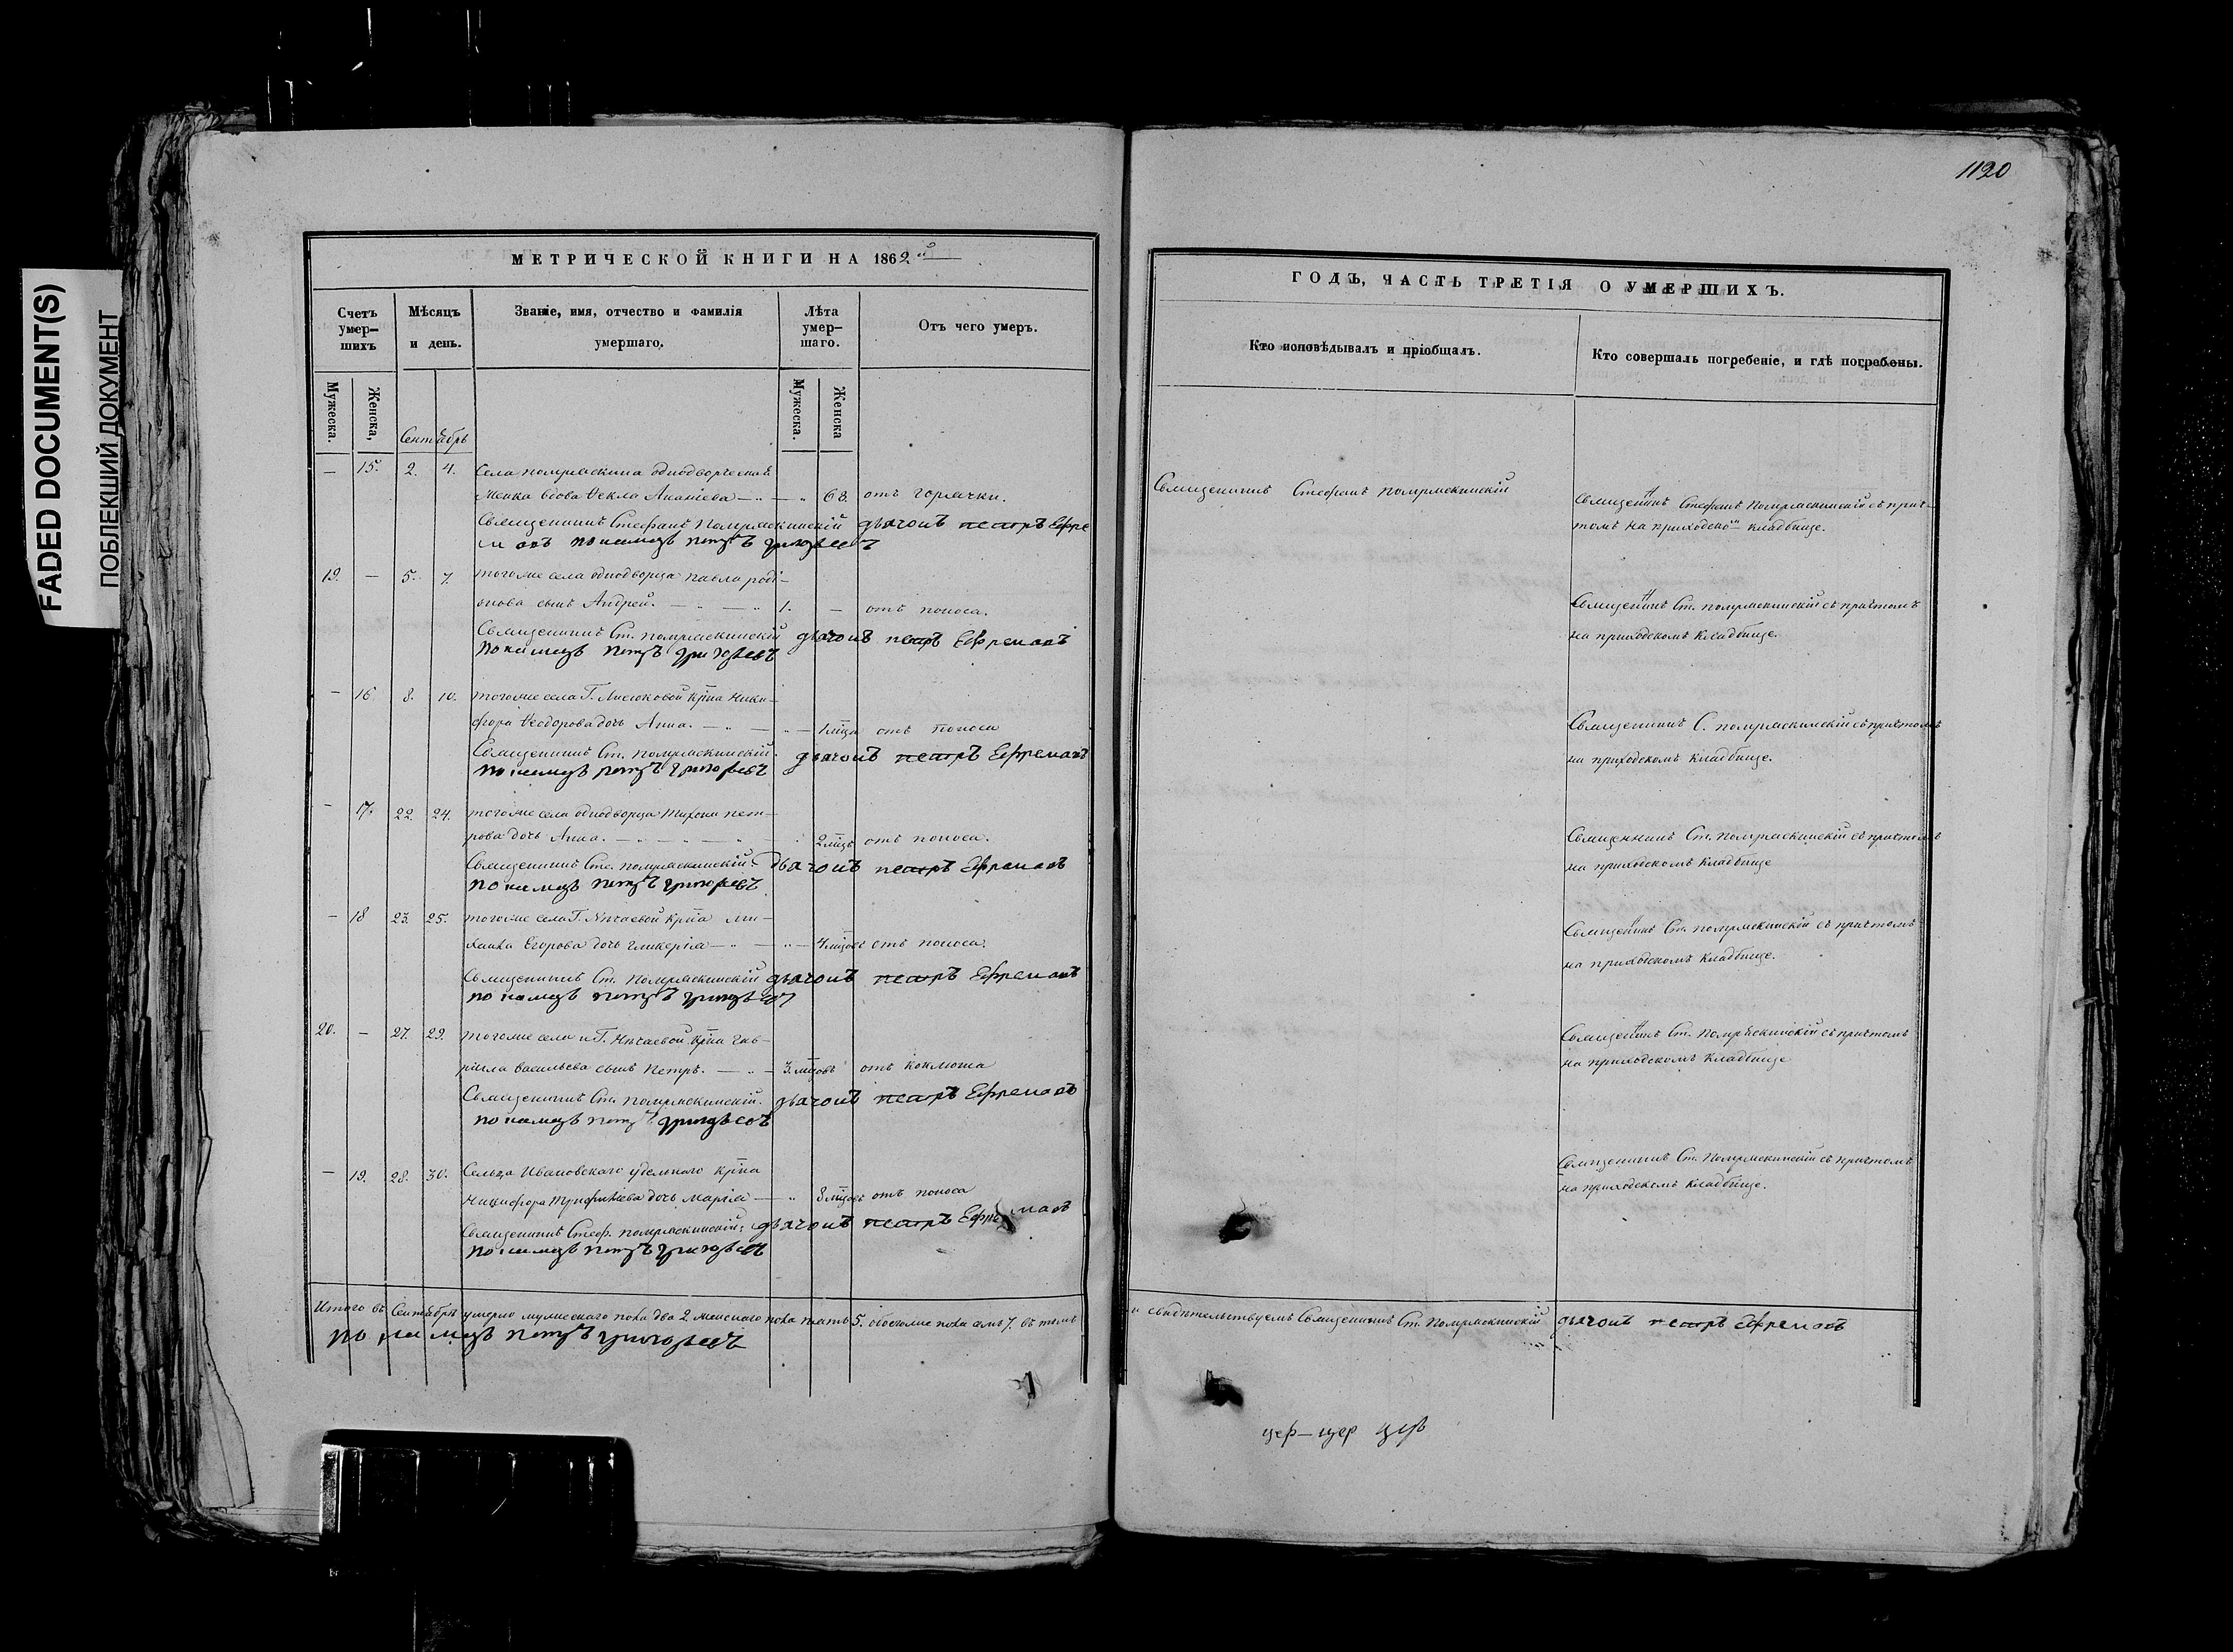 FADED DOCUMENT(S)
ПОБЛЕКШИЙ ДОКУМЕНТ
1120
МЕТРИЧЕСКОЙ КНИГИ НА 1862й
Счетъ умер-шихъ
Мѣсяцъ и день.
Званіе, имя, отчество и фамилія умершаго.
Лѣта умер-шаго.
Отъ чего умеръ.
Мужеска.
Женска,
Мужеска.
Женска
Сентябрь
— 15. 2. 4. Села однодворческая
женка вдова Ѳекла Ананіева — 68. отъ горячки.
Священникъ Стефанъ дьячокъ петръ Ефре
мовъ пономарь петръ григорьевъ
19. — 5. 7. тогоже села однодворца павла роді-
онова сынъ Андрей. 1. — отъ поноса.
Священникъ Ст. дьячокъ петръ Ефремовъ
пономарь петръ григорьевъ
— 16 8. 10. тогоже села Г. крна Ники-
фора Ѳеодорова дочь Анна. — 1 мца отъ поноса
Священникъ Ст. дьячокъ петръ Ефремовъ
пономарь петръ григорьевъ
— 17. 22. 24. тогоже села однодворца Тихона пет-
рова дочь Анна. 2 мцъ отъ поноса.
Священникъ Сте. дьячокъ петръ Ефремовъ
пономарь петръ григорьевъ
— 18 23. 25. тогоже села Г. Нѣчаевой крна ми-
хаила Егорова дочь гликерія — 4 мцовъ отъ поноса.
Священникъ Ст. дьячокъ петръ Ефремовъ
пономарь петръ григорьевъ
20. — 27. 29. тогоже села и Г. Нѣчаевой крна гав-
ріила васильева сынъ Петръ. — 3 мцовъ отъ коклюша
Священникъ Ст. дьячокъ петръ Ефремовъ
пономарь петръ григорьевъ
— 19. 28. 30. Сельца Ивановскаго удельнаго крна
Никифора дочь марія — 8 мцовъ отъ поноса
Священникъ Стеф. дьячокъ петръ Ефремовъ
пономарь петръ григорьевъ
Итого въ Сентябрѣ умерло мужескаго пола два 2 женскаго пола пять 5. обоегоже пола семь 7. въ томъ
пономарь петръ григорьевъ
ГОДЪ, ЧАСТЬ ТРЕТІЯ О УМЕРШИХЪ.
Кто исповѣдывалъ и пріобщалъ.
Кто совершалъ погребеніе, и гдѣ погребены.
Священникъ Стефанъ
Священникъ Стефанъ съ прич-
томъ на приходском кладбище.
Священникъ Ст. съ причтомъ
на приходскомъ кладбище.
Священникъ С. съ причтомъ
на приходскомъ кладбище.
Священникъ Ст. съ причтомъ
на приходскомъ кладбище
Священникъ Ст. съ причтомъ
на приходскомъ кладбище.
Священникъ Ст. съ причтомъ
на приходскомъ кладбище
Священникъ Ст. съ причтомъ
на приходскомъ кладбище.
и свидѣтельствуемъ Священникъ Ст. дьячокъ петръ Ефремовъ
цер—цер